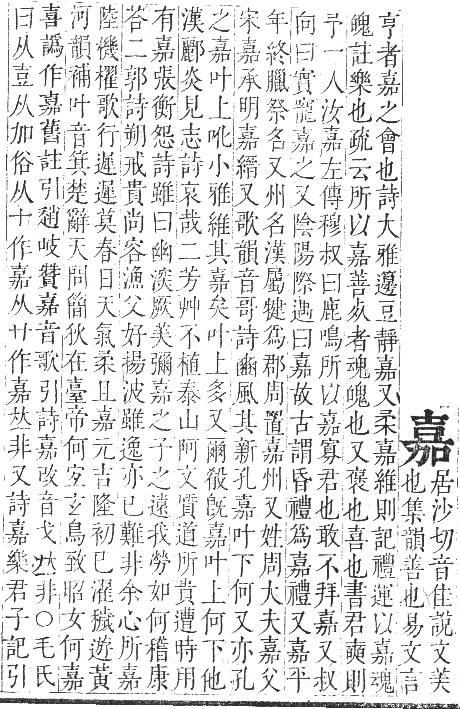 嘉居沙切音佳說文美
也集韻善也易文言
亨者嘉之會也詩大雅籩豆靜嘉又柔嘉維則記禮運以嘉魂
魄註樂也疏云所以嘉善死者魂魄也又褒也喜也書君奭則
予一人汝嘉左傳穆叔曰鹿鳴所以嘉寡君也敢不拜嘉又叔
向曰實寵嘉之又陰陽際遇曰嘉故古謂昏禮爲嘉禮又嘉平
年終臘祭名又州名漢屬犍爲郡周置嘉州又姓周大夫嘉父
宋嘉承明嘉縉又歌韻音哥詩豳風其新孔嘉叶下何又亦孔
之嘉叶上吪小雅維其嘉矣叶上多又爾殽旣嘉叶上何下他
漢酈炎見志詩哀哉二芳艸不植泰山阿文質道所貴遭時用
有嘉張衡怨詩雖曰幽深厥美彌嘉之子之遠我勞如何稽康
荅二郭詩朔戒貴尚容漁父好揚波雖逸亦已難非余心所嘉
陸機櫂歌行遲遲莫春日天氣柔且嘉元吉隆初巳濯穢遊黃
河韻補叶音箕楚辭天問簡狄在臺帝何宐玄鳥致昭女何嘉
喜譌作嘉舊註引趙岐贊嘉音歌引詩嘉改音戈𠀤非○毛氏
曰从壴从加俗从十作嘉从廾作嘉𠀤非又詩嘉樂君子記引